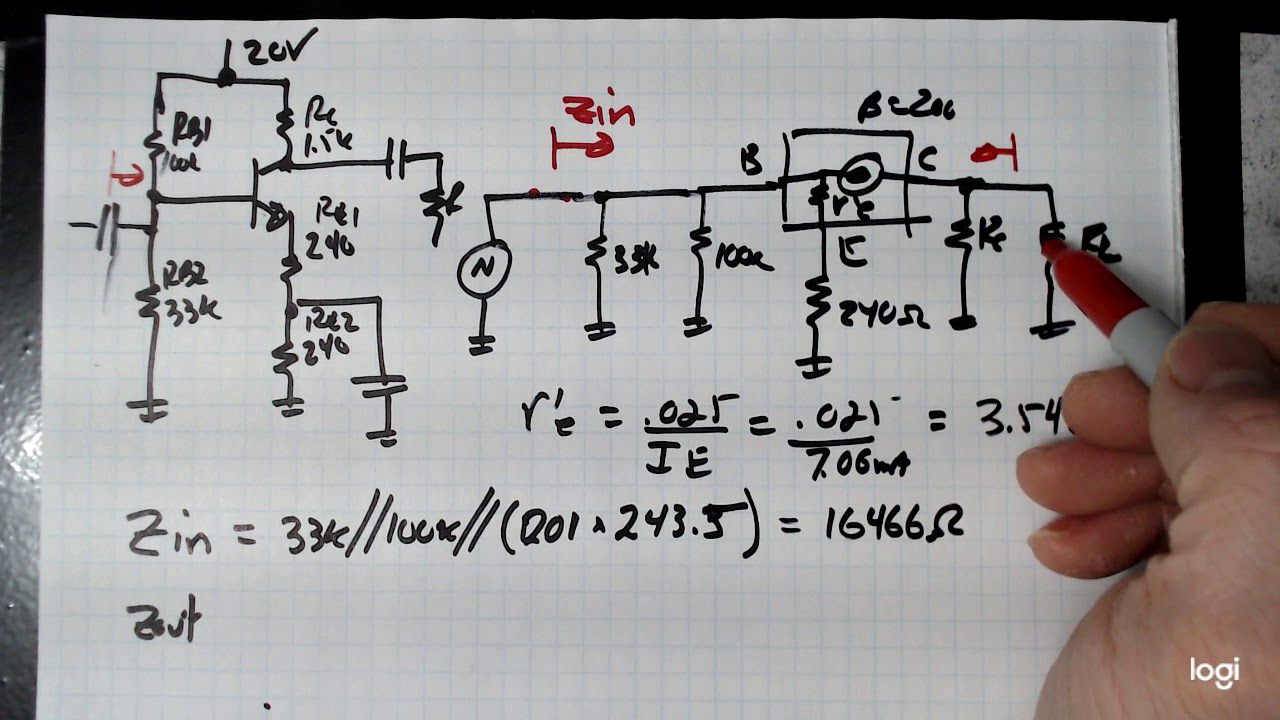 20V
RB1
100k
RC
1.5k
RE1
240
RB2
33k
RE2
240
Zin
β=200
B
C
r'e
E
33k
100k
240Ω
RC
RL
r'e = .025 / IE = .025 / 7.06mA = 3.54
Zin = 33k//100k//(201 × 243.5) = 16466Ω
Zout
logi